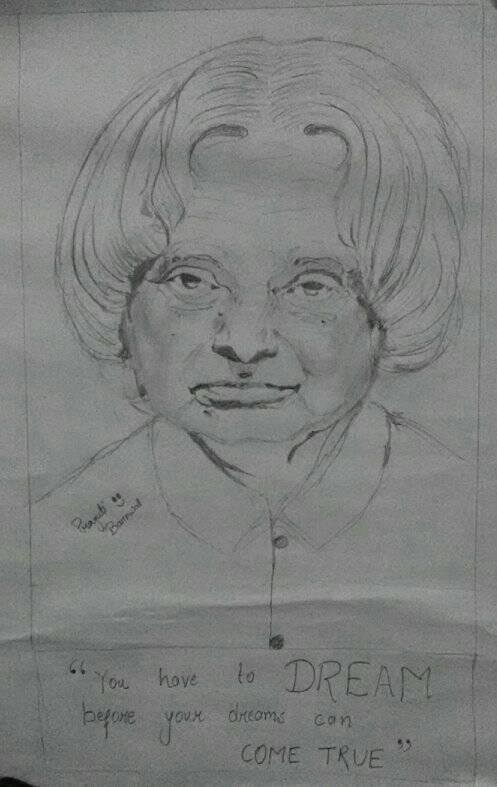 Barman
“ You have to DREAM
before your dreams can
COME TRUE ”